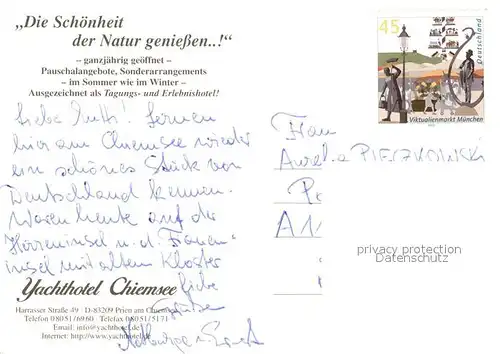 „Die Schönheit
der Natur genießen..!“
– ganzjährig geöffnet –
Pauschalangebote, Sonderarrangements
– im Sommer wie im Winter –
Ausgezeichnet als Tagungs- und Erlebnishotel!
Liebe Mutti! Lernen
hier am Chiemsee wieder
ein schönes Stück von
Deutschland kennen.
Waren heute auf der
Herreninsel u. d. Frauen-
insel mit altem Kloster
Liebe
Grüße
Ernst
Yachthotel Chiemsee
Harrasser Straße 49 · D-83209 Prien am Chiemsee
Telefon 08051/6960 · Telefax 08051/5171
Email: info@yachthotel.de
Internet: http://www.yachthotel.de
45
Deutschland
Viktualienmarkt München
Frau
privacy protection
Datenschutz